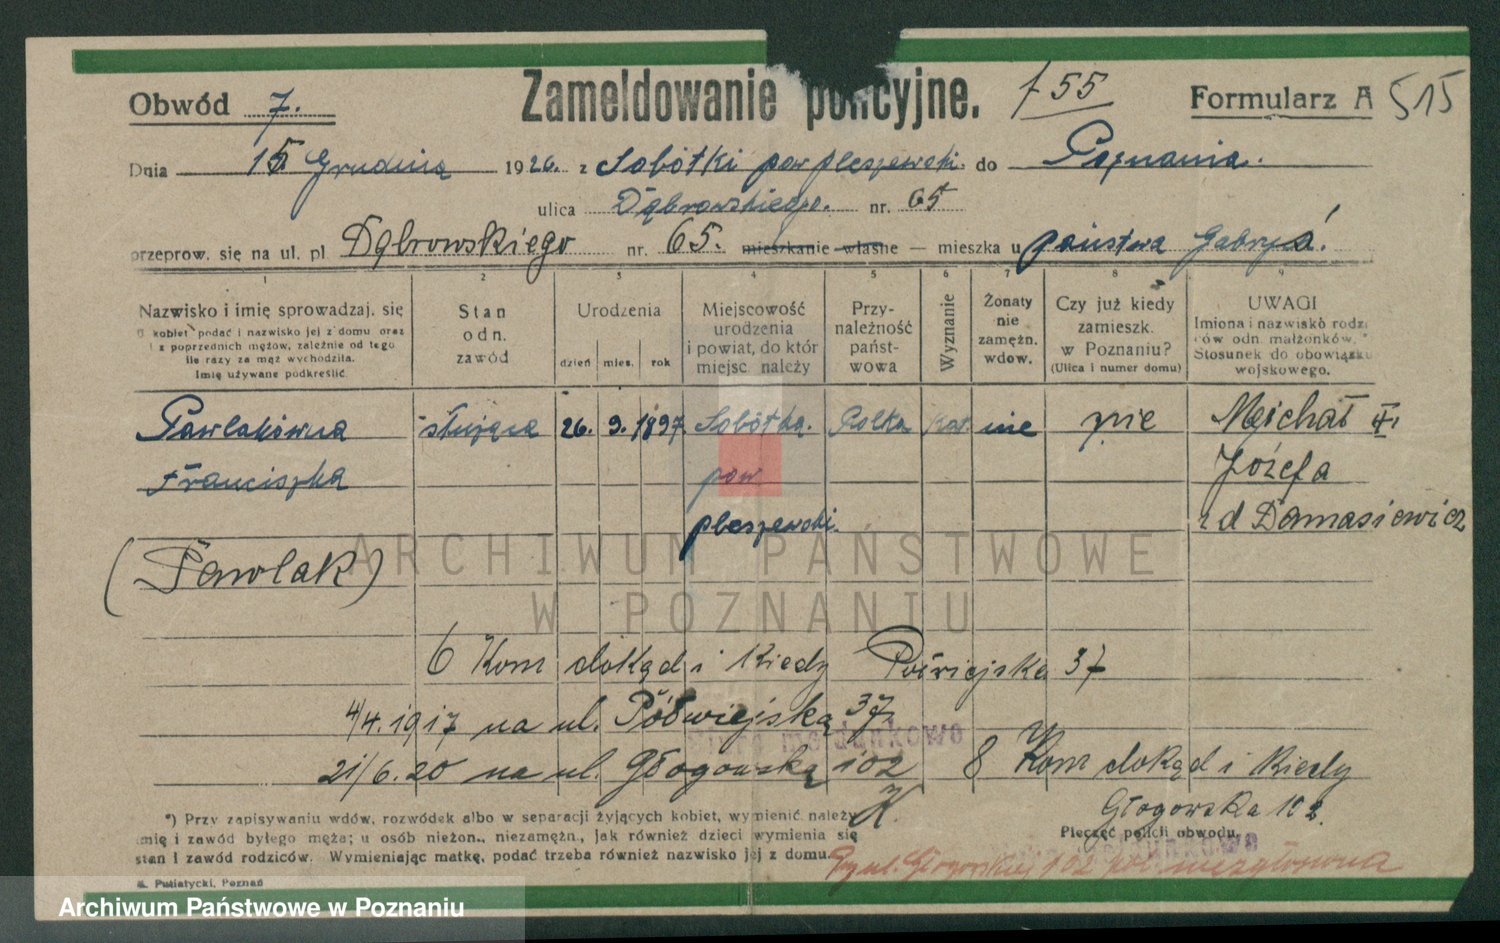 Zameldowanie policyjne. 755
Formularz A 515
Obwód 7.
Dnia 15 Grudnia 1926. z Sobótki pow pleszewski. do Poznania.
ulica Dąbrowskiego. nr. 65
przeprow. się na ul. pl Dąbrowskiego nr. 65. mieszkanie własne — mieszka u państwa
1 2 3 4 5 6 7 8 9
Nazwisko i imię sprowadzaj. się
kobiet podać i nazwisko jej z domu oraz
i z poprzednich mężów, zależnie od tego
ile razy za mąż wychodziła.
Imię używane podkreślić.
Stan
odn.
zawód
Urodzenia
dzień mies. rok
Miejscowość
urodzenia
i powiat, do któr
miejsc należy
Przy-
należność
państ-
wowa
Wyznanie
Żonaty
nie
zamężn.
wdow.
Czy już kiedy
zamieszk.
w Poznaniu?
(Ulica i numer domu)
UWAGI
Imiona i nazwisko rodzi
ców odn. małżonków.
Stosunek do obowiązku
wojskowego.
Pawlakówna służąca 26. 9. 1897. Sobótka. Polka kat. nie nie Michał
Franciszka pow. Józefa
pleszewski. z d Damasiewicz
(Pawlak)
ARCHIWUM PAŃSTWOWE
W POZNANIU
6 Kom dokąd i kiedy Półwiejska 37
4/4.1917 na ul. Półwiejską 37
21/6.20 na ul. Głogowską 102
8 Kom dokąd i kiedy
Głogowska 102.
*) Przy zapisywaniu wdów, rozwódek albo w separacji żyjących kobiet, wymienić należy
imię i zawód byłego męża; u osób nieżon., niezamężn., jak również dzieci wymienia się
stan i zawód rodziców. Wymieniając matkę, podać trzeba również nazwisko jej z domu.
Pieczęć policji obwodu.
Przy ul. Głogowskiej 102 niezgłoszona
K. Putiatycki, Poznań
Archiwum Państwowe w Poznaniu